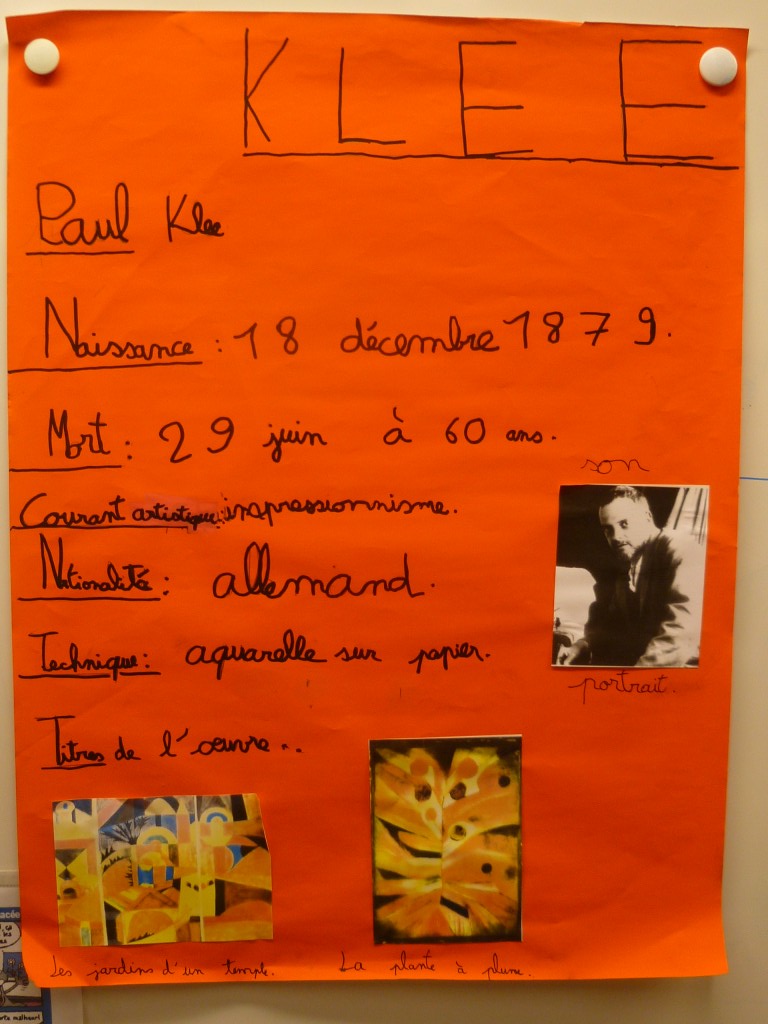 KLEE
Paul Klee
Naissance : 18 décembre 1879.
Mort : 29 juin à 60 ans.
Courant artistique: impressionnisme.
Nationalité : allemand.
Technique : aquarelle sur papier.
son
portrait.
Titres de l'œuvre..
Les jardins d'un temple.
La plante à plume.